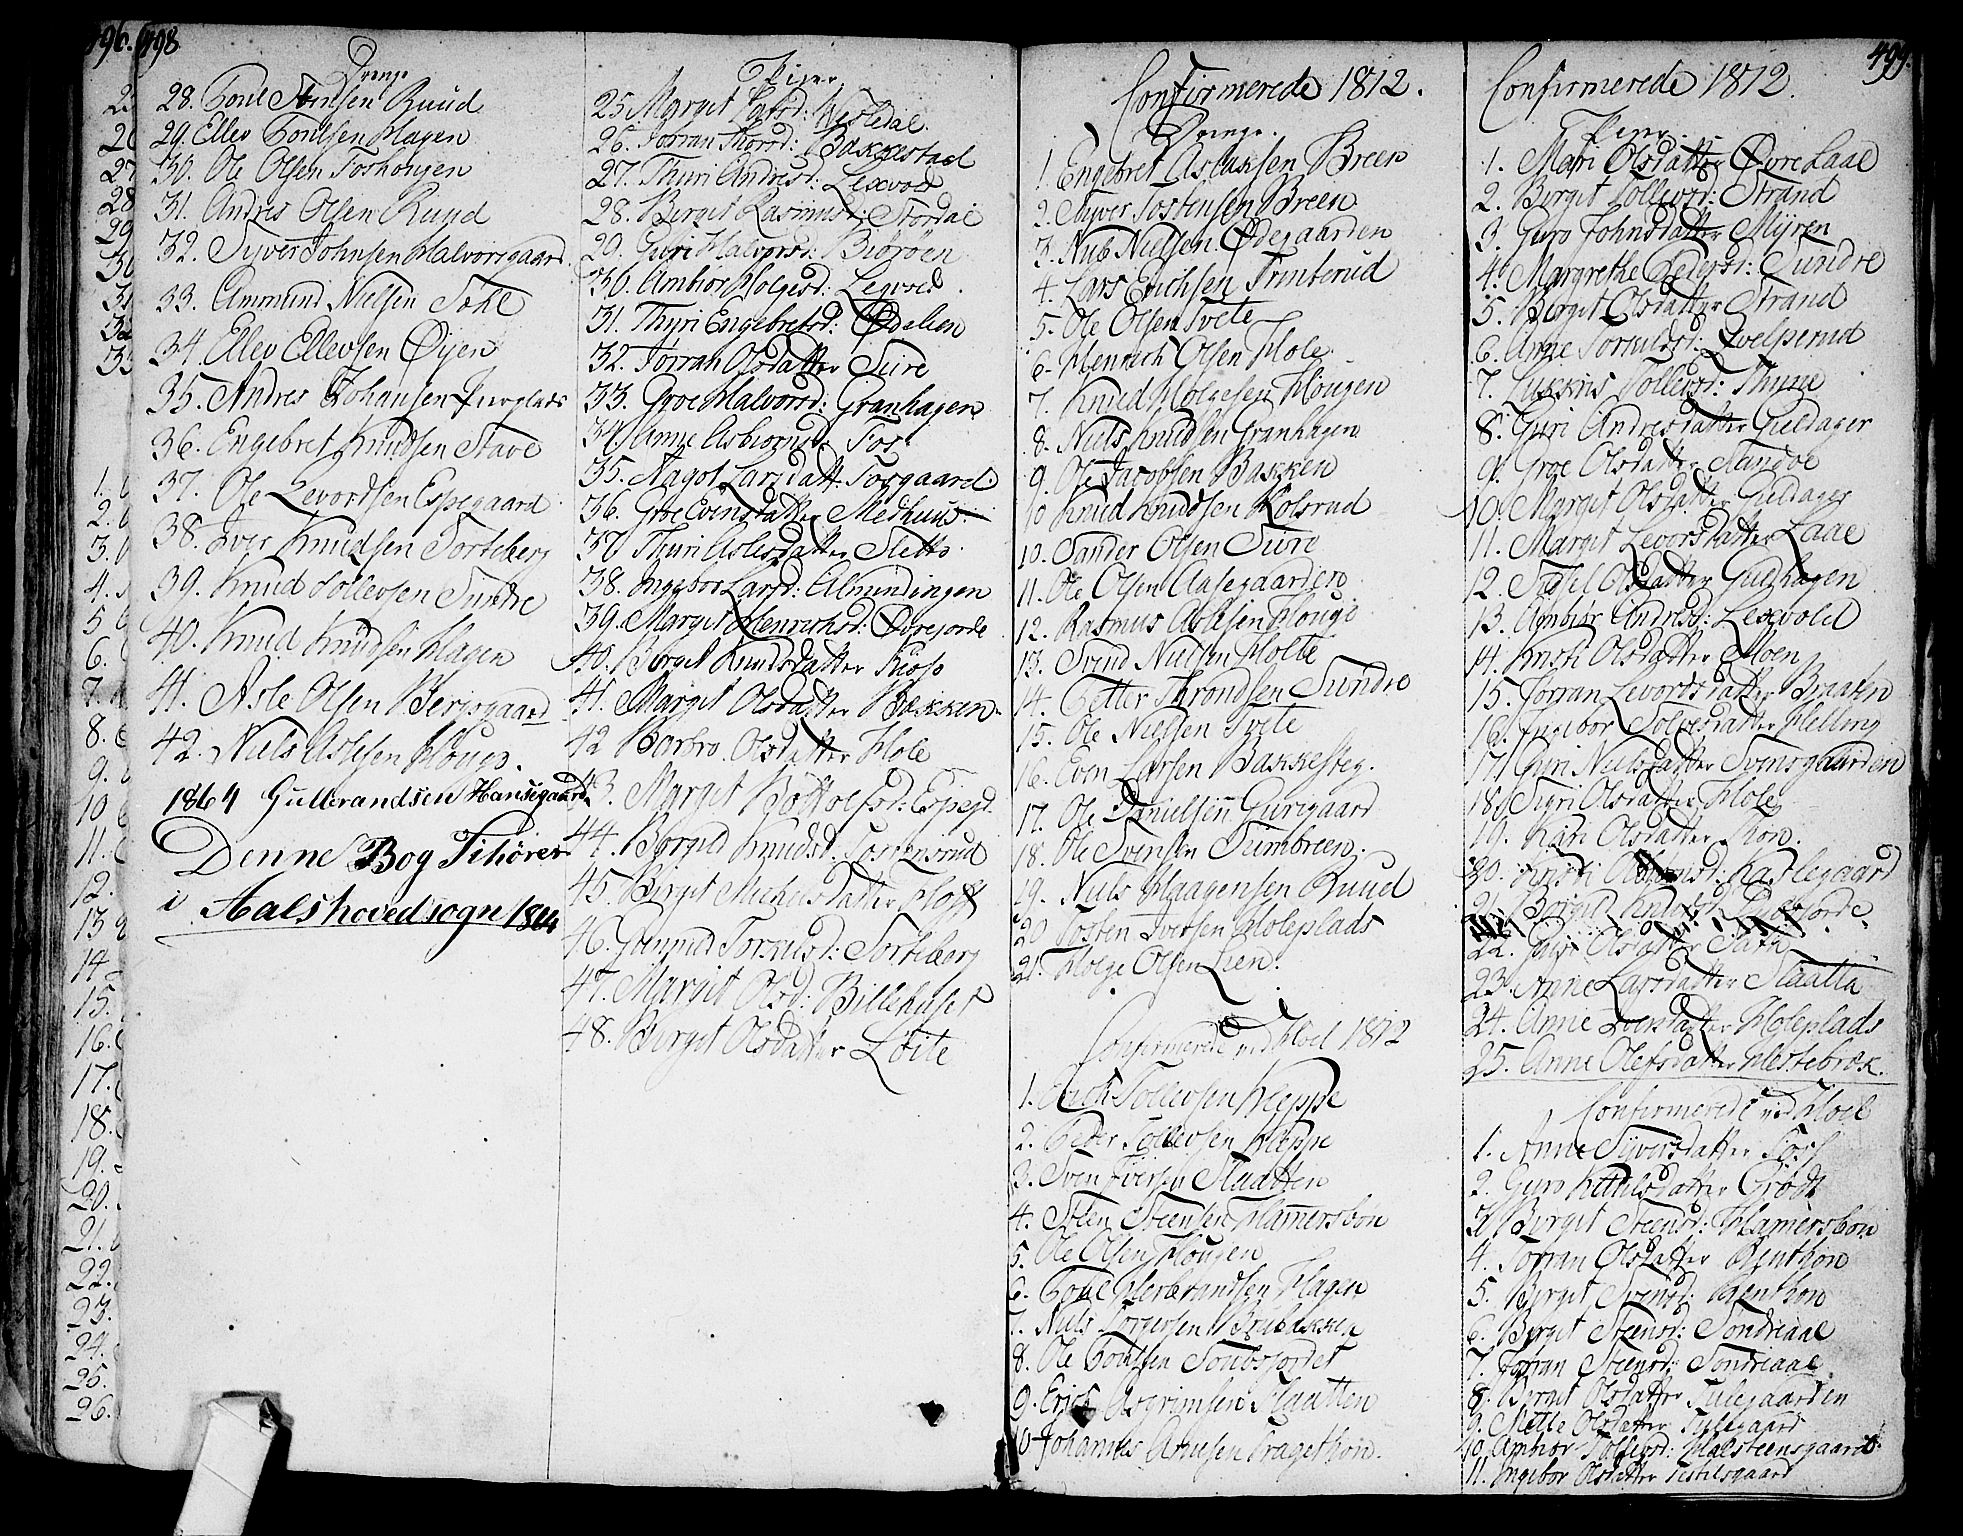 498
Drenge
28. Poul Poulsen Ruud
29. Ellev Poulsen Hagen
30. Ole Olsen
31. Andres Olsen Ruud
32. Syver Johnsen Halvorsgaard
33. Ammund Nielsen
34. Ellev Ellevsen Øijen
35. Andres Johansen
36. Engebret Knudsen Stave
37. Ole Levordsen Espegaard
38. Iver Knudsen Torteberg
39. Knud Tollevsen Sundre
40. Knud Knudsen Hagen
41. Asle Olsen Bergsgaard
42. Niels Aslesen
1864 Gulbrandsen Hansegaard
Denne Bog Tihører
i Aals hovedsogn 1864
Piger
25. Margit Larsd: Westedal
26. Jorran Thorsd: Bakkestad
27. Thuri Andresd: Lexvold
28. Birgit Rasmusd: Stordal
29. Guri Halvorsd: Biøröen
30. Ambior Holgesd:
31. Thyri Engebretsd: Ødelien
32. Jørran Olsdatter Sire
33. Groe Halvorsd: Granhagen
34. Anne Asbiornsd: Tos
35. Nagot Larsdatt: Torgaard
36. Groe Evensdatter Medhuus
37. Thuri Aslesdatter Sletto
38. Ingebor Larsd: Almindingen
39. Margit Henrichsd: Øvrejorde
40. Birgit Knudsdatter
41. Margit Olsdatter Bakken
42 Barbro Olsdatter Hole
43. Margit Bottolfsd: Espegd.
44. Birgit Knudsd.
45. Birgit Michelsdatter
46. Gunnild Torkildsd: Torteberg
47. Margit Olsd: Billehuset
48. Birgit Olsdatter Løite
499.
Confirmerede 1812.
Drenge.
1. Engebret Aslaksen Breen
2. Syver Tostensen Breen
3. Nub Nielsen Ødegaarden
4. Lars Erichsen Trinterud
5. Ole Olsen Tvete
6. Henrich Olsen Hole
7. Knud Holgesen Hougen
8. Niels Knudsen Granhagen
9. Ole Jacobsen Bakken
10 Knud Knudsen Kolsrud
10. Sander Olsen Sire
11. Ole Olsen Aasegaarden
12. Rasmus Aslesen
13. Svend Nielsen Holte
14. Petter Throndsen Sundre
15. Ole Nielsen Tvete
16. Even Larsen Bakkesteg.
17. Ole Danielsen Gurigaard
18. Ole Svensen Sumbreen.
19. Niels Haagensen Ruud
20 Tosten Iversen Holeplads
21. Holge Olsen Lien.
Confirmerede ved Hoel 1812
1. Erich Tollevsen Kleppe
2. Peder Tollevsen Kleppe
3. Sven Iversen Slaatten
4. Steen Steensen Hamersbøn
5. Ole Olsen Hougen
6. Poul Herbrandsen Hagen
7. Niels Torgersen
8. Ole Poulsen
9. Erich Asgrimsen Slaatten
10 Johannes Arnesen Tragethon.
Confirmerede 1812.
Piger
1. Mari Olsdatter Øvre Laae
2. Birgit Tollevsd: Strand
3. Guro Johnsdatter Mÿren
4. Margrethe Pedersd: Sundre
5. Birgit Olsdatter Strand
6. Anne Torkildsd: Qvelperud
7. Tollevsd: Thune
8. Guri Andresdatter Guldager
9. Groe Olsdatter Sandoe
10. Margit Olsdatter Guldager
11. Margit Levorsdatter Laae
12. Sidsel Olsdatter Gudhagen
13. Ambiør Andresd: Lexvold
14. Kristi Olsdatter Moen
15. Jorran Levordsdatter Braaten
16. Ingebor Solvesdatter Helling
17. Guri Nielsdatter Svinsgaarden
18. Sigri Olsdatter Hole
19. Kari Olsdatter Ron.
20. Kristi Karlegaard
21. Birgit Knudsd.
22. Guri Olsdatter
23. Anne Larsdatter Slaatta
24. Anne Iversdatter Holeplads
25. Anne Olefsdatter Hestebrek.
Confirmerede ved Hoel
1. Anne Syversdatter
2. Guro Kittilsdatter
3. Birgit Steensd: Hamersbøn
4. Jorran Olsdatter Renthon
5. Birgit Svensd: Renthon
6. Birgit Steensd: Sondreaal
7. Jørran Steensd: Sondreaal
8. Birgit Olsdatter Tulegaarden
9. Mette Olsdatter Tullegaard
10. Ambior Tollevsd: Halsteensgaard
11. Ingebor Olsdatter